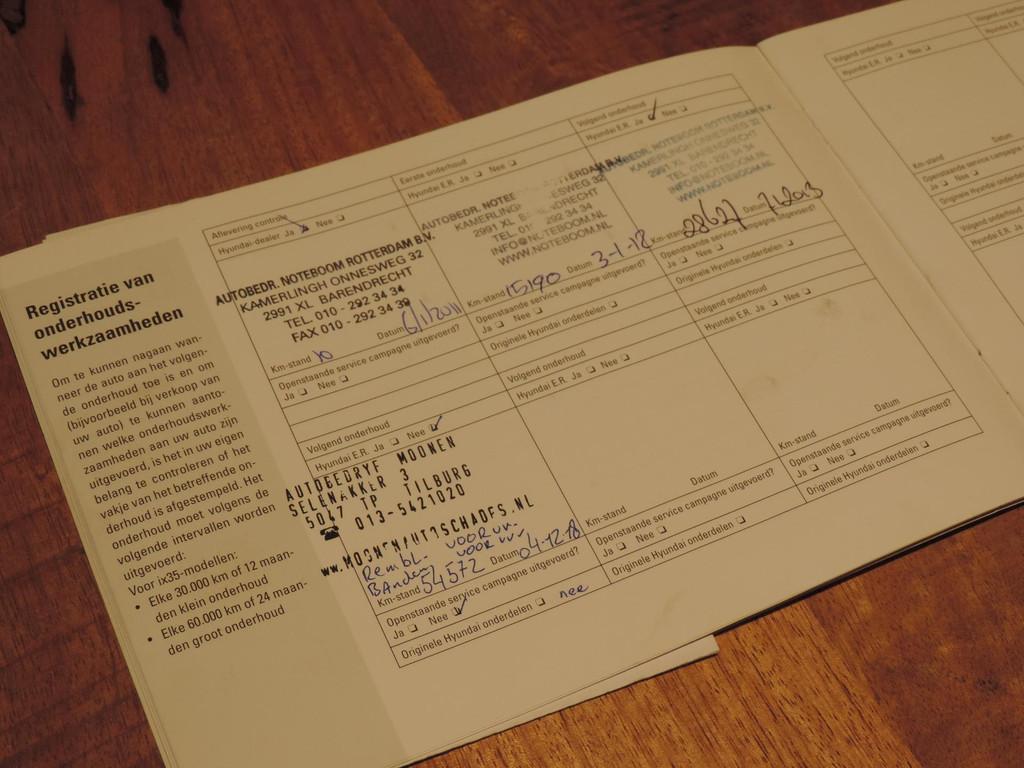 Registratie van
onderhouds-
werkzaamheden
Om te kunnen nagaan wan-
neer de auto aan het volgen-
de onderhoud toe is en om
(bijvoorbeeld bij verkoop van
uw auto) te kunnen aanto-
nen welke onderhoudswerk-
zaamheden aan uw auto zijn
uitgevoerd, is het in uw eigen
belang te controleren of het
vakje van het betreffende on-
derhoud is afgestempeld. Het
onderhoud moet volgens de
volgende intervallen worden
uitgevoerd:
Voor ix35-modellen:
• Elke 30.000 km of 12 maan-
den klein onderhoud
• Elke 60.000 km of 24 maan-
den groot onderhoud
Aflevering controle
Hyundai-dealer Ja Nee
AUTOBEDR. NOTEBOOM ROTTERDAM B.V.
KAMERLINGH ONNESWEG 32
2991 XL BARENDRECHT
TEL. 010 - 292 34 34
FAX 010 - 292 34 39
Km-stand 10 Datum 6/1/2011
Openstaande service campagne uitgevoerd?
Ja Nee
Eerste onderhoud
Hyundai E.R. Ja Nee
AUTOBEDR. NOTEB
KAMERLINGH ONNESWEG 32
2991 XL BARENDRECHT
292 34 34
INFO@NOTEBOOM.NL
WWW.NOTEBOOM.NL
Km-stand 15190 Datum 3-1-12
Openstaande service campagne uitgevoerd?
Ja Nee
Originele Hyundai onderdelen
Volgend onderhoud
Hyundai E.R. Ja Nee
AUTOBEDR. NOTEBOOM ROTTERDAM B.V.
KAMERLINGH ONNESWEG 32
2991 XL BARENDRECHT
TEL. 010 - 292 34 34
INFO@NOTEBOOM.NL
WWW.NOTEBOOM.NL
Km-stand 28627 Datum 7/1/2013
Openstaande service campagne uitgevoerd?
Ja Nee
Originele Hyundai onderdelen
Volgend onderhoud
Hyundai E.R. Ja Nee
AUTOBEDRYF MOONEN
SELENAKKER 3
5047 TP TILBURG
013-5421020
Rembl- VOOR VV.
Banden VOOR VV
Km-stand 54572 Datum 04-12-18
Openstaande service campagne uitgevoerd?
Ja Nee
Originele Hyundai onderdelen nee
Volgend onderhoud
Hyundai E.R. Ja Nee
Km-stand Datum
Openstaande service campagne uitgevoerd?
Ja Nee
Originele Hyundai onderdelen
Volgend onderhoud
Hyundai E.R. Ja Nee
Km-stand Datum
Openstaande service campagne uitgevoerd?
Ja Nee
Originele Hyundai onderdelen
Volgend onderhoud
Hyundai E.R. Ja Nee
Km-stand Datum
Openstaande service campagne
Ja Nee
Originele Hyundai
Volgend onderhoud
Hyundai E.R. Ja